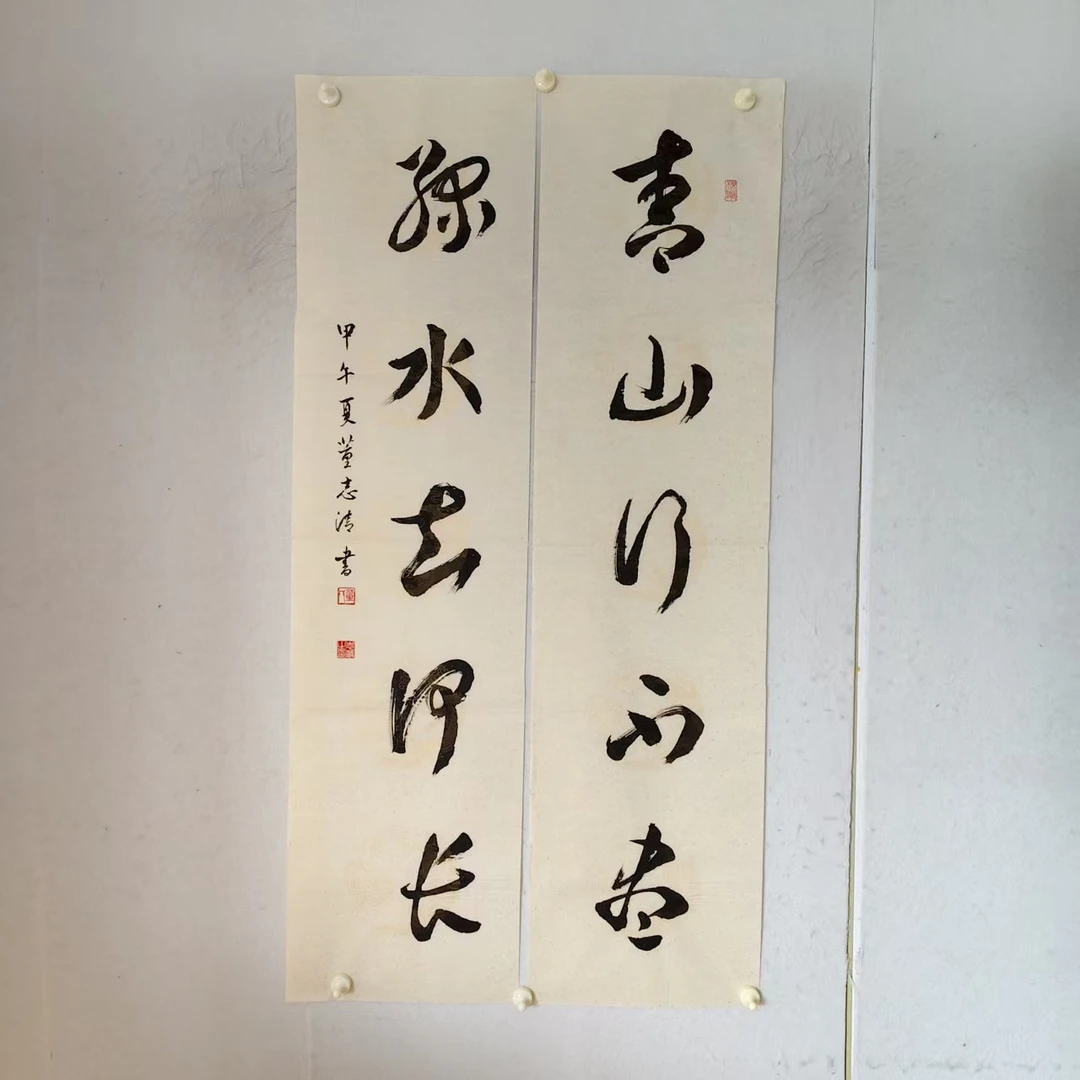 青山行不尽
绿水去何长
甲午夏董志清书